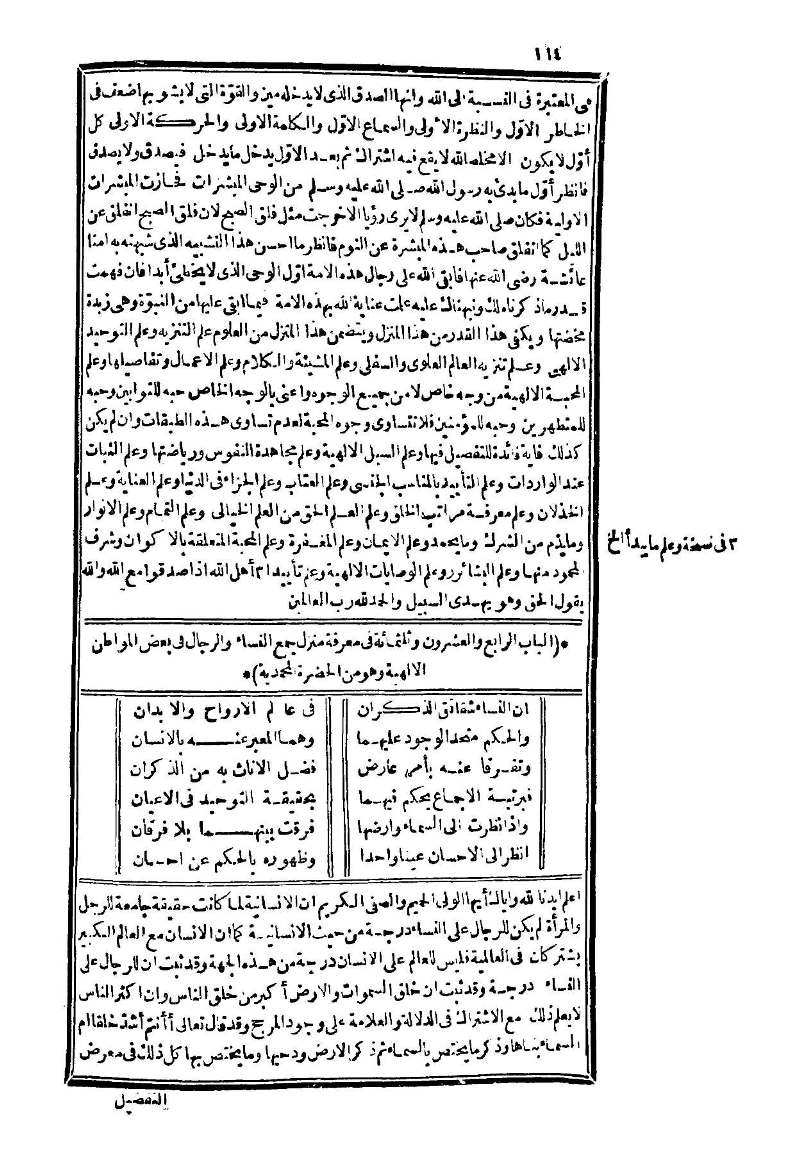 ١١٤
هى المعتبرة فى النسبة الى الله وانها الصدق الذى لا يدخله مين والقوة التى لا يشوبها ضعف فى
الخاطر الاول والنظرة الاولى والسماع الاول والكلمة الاولى والحركة الاولى كل
أول لا يكون الا مخلصا لله لا يقع فيه اشتراك ثم بعد الاول يدخل ما يدخل فيصدق ولا يصدق
فانظر أول ما بدئ به رسول الله صلى الله عليه وسلم من الوحى المبشرات فحازت المبشرات
الاولية فكان صلى الله عليه وسلم لا يرى رؤيا الا خرجت مثل فلق الصبح لان فلق الصبح انفلق عن
الليل كما انفلق صاحب هذه المبشرة عن النوم فانظر ما احسن هذا التشبيه الذى شبهته به امنا
عائشة رضى الله عنها فابقى الله على رجال هذه الامة اول الوحى الذى لا يخطئ أبدا فان فهمت
قدر ما ذكرناه لك ونبهناك عليه علمت عناية الله بهذه الامة فيما ابقى عليها من النبوة وهى زبدة
مخضتها ويكفى هذا القدر من هذا المنزل ويتضمن هذا المنزل من العلوم علم التنزيه وعلم التوحيد
الالهى وعلم تنزيه العالم العلوى والسفلى وعلم المشيئة والكلام وعلم الاعمال وتفاصيلها وعلم
المحبة الالهية من وجه خاص لا من جميع الوجوه واعنى بالوجه الخاص حبه للتوابين وحبه
للمتطهرين وحبه للمؤمنين فلا تتساوى وجوه المحبة لعدم تساوى هذه الطبقات وان لم يكن
كذلك فاية فائدة للتفصيل فيها وعلم السبل الالهية وعلم مجاهدة النفوس ورياضتها وعلم الثبات
عند الواردات وعلم التأييد بالمناسب الجنسى وعلم العتاب وعلم الجزاء فى الدنيا وعلم العناية وعلم
الخذلان وعلم معرفة مراتب الخلق وعلم العلم الحق من العلم الخيالى وعلم التمام وعلم الانوار
وما يذم من الشرك وما يحمد وعلم الايمان وعلم المغفرة وعلم المحبة المتعلقة بالاكوان وشرف
المحمود منها وعلم البشائر وعلم الوصايات الالهية وعز تأييد ٣ أهل الله اذا صدقوا مع الله والله
يقول الحق وهو يهدى السبيل والحمد لله رب العالمين
٣ فى نسخة وعلم ما يبدأ الخ
*(الباب الرابع والعشرون وثلثمائة فى معرفة منزل جمع النساء والرجال فى بعض المواطن
الالهية وهو من الحضرة المحمدية)*
ان النساء شقائق الذكران فى عالم الارواح والابدان
والحكم متحد الوجود عليهما وهما المعبر عنه بالانسان
وتفرقا عنه بأمر عارض فصل الاناث به من الذكران
فبرتبة الاجماع يحكم فيهما بحقيقة التوحيد فى الاعيان
واذا نظرت الى السماء وارضها فرقت بينهما بلا فرقان
انظر الى الاحسان عينا واحدا وظهوره بالحكم عن احسان
اعلم ايدنا الله واياك أيها الولى الحميم والصفى الكريم ان الانسانية لما كانت حقيقة جامعة للرجل
والمرأة لم يكن للرجال على النساء درجة من حيث الانسانية كما ان الانسان مع العالم الكبير
يشتركان فى العالمية فليس للعالم على الانسان درجة من هذه الجهة وقد ثبت ان للرجال على
النساء درجة وقد ثبت ان خلق السموات والارض أكبر من خلق الناس وان اكثر الناس
لا يعلم ذلك مع الاشتراك فى الدلالة والعلامة على وجود المرجح وقد قال تعالى أأنتم أشد خلقا ام
السماء بناها وذكر ما يختص بالسماء ثم ذكر الارض ودحيها وما يختص بها كل ذلك فى معرض
التفضيل